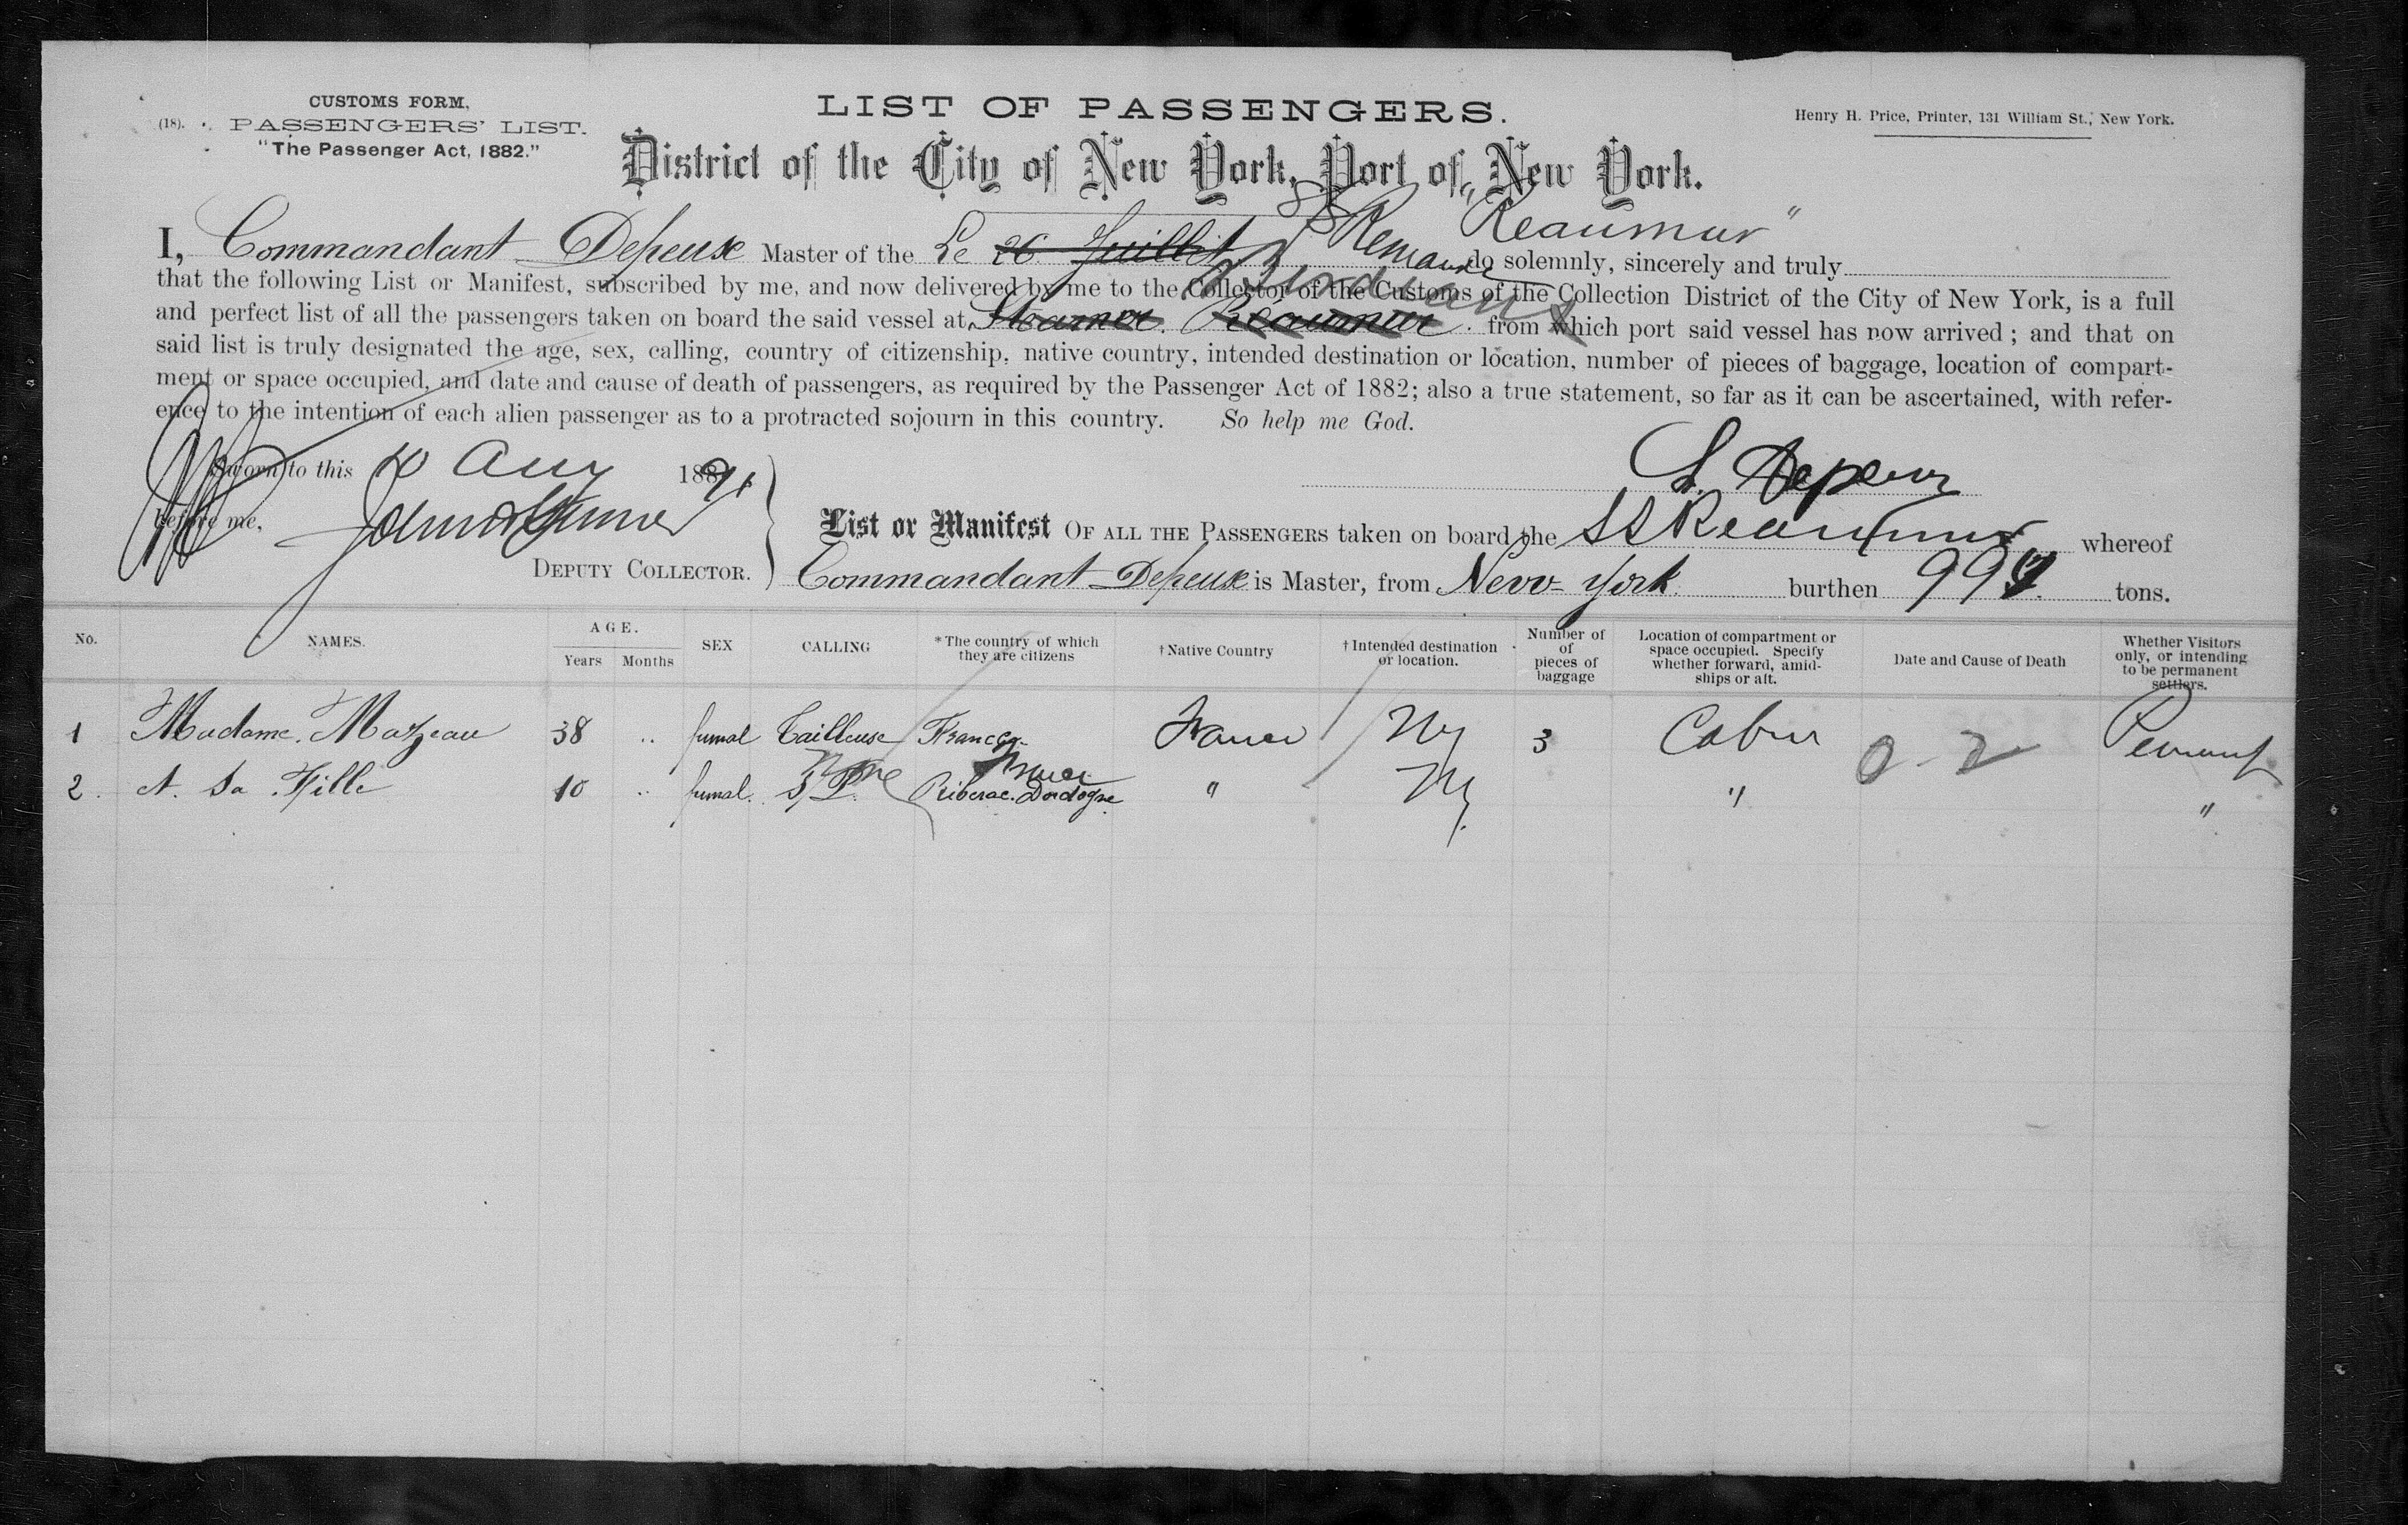 CUSTOMS FORM,
(18). PASSENGERS' LIST.
"The Passenger Act, 1882."
LIST OF PASSENGERS.
Henry H. Price, Printer, 131 William St., New York.
District of the City of New York, Port of New York.
I, Commandant Depeux Master of the Le 26 Juillet SS "Reaumur" do solemnly, sincerely and truly
that the following List or Manifest, subscribed by me, and now delivered by me to the Collector of the Customs of the Collection District of the City of New York, is a full
and perfect list of all the passengers taken on board the said vessel at Steamer Reaumur from which port said vessel has now arrived; and that on
said list is truly designated the age, sex, calling, country of citizenship, native country, intended destination or location, number of pieces of baggage, location of compart-
ment or space occupied, and date and cause of death of passengers, as required by the Passenger Act of 1882; also a true statement, so far as it can be ascertained, with refer-
ence to the intention of each alien passenger as to a protracted sojourn in this country. So help me God.
Sworn to this 10 Aug 1891
before me,
DEPUTY COLLECTOR.
Depeux
List or Manifest OF ALL THE PASSENGERS taken on board the SS Reaumur whereof
Commandant Depeux is Master, from New York burthen 997 tons.
No. NAMES. AGE. Years Months SEX CALLING *The country of which they are citizens †Native Country †Intended destination or location. Number of pieces of baggage Location of compartment or space occupied. Specify whether forward, amid-ships or aft. Date and Cause of Death Whether Visitors only, or intending to be permanent settlers.
1 Madame Mazeau 38 .. femal Tailleuse France France NY 3 Cabin 0-2
2. et Sa Fille 10 .. femal. S/P. None France Riberac. Dordogne " NY " "